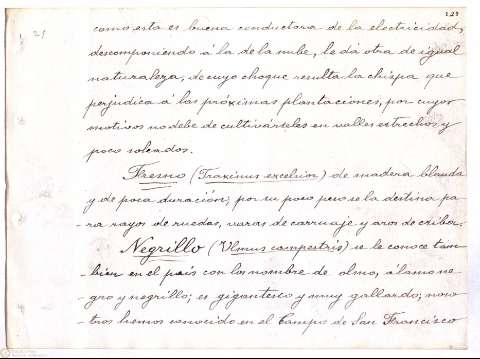 129
29
como esta es buena conductora de la electricidad,
descomponiendo á la de la nube, le dá otra de igual
naturaleza, de cuyo choque resulta la chispa que
perjudica á las próximas plantaciones, por cuyos
motivos no debe de cultivárseles en valles estrechos y
poco soleados.
Fresno (Fraxinus excelsior) de madera blanda
y de poca duración; por su poco peso se la destina pa-
-ra rayos de ruedas, varas de carruaje y aros de cribas.
Negrillo (Ulmus campestris) se le conoce tam-
-bien en el pais con los nombre de olmo, álamo ne-
-gro y negrillo; es gigantesco y muy gallardo; noso-
-tros hemos conocido en el Campo de San Francisco